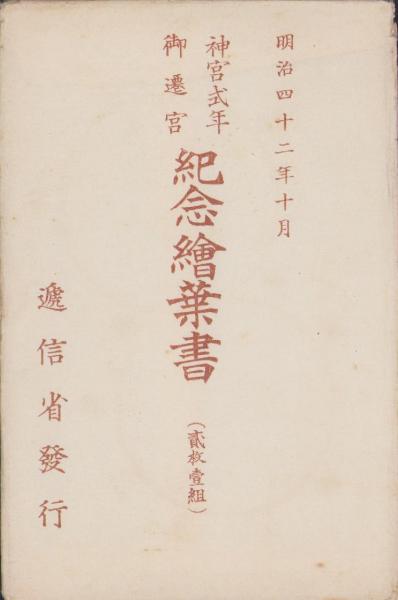 明治四十二年十月
神宮式年
御遷宮
紀念繪葉書
（貳枚壹組）
遞信省發行